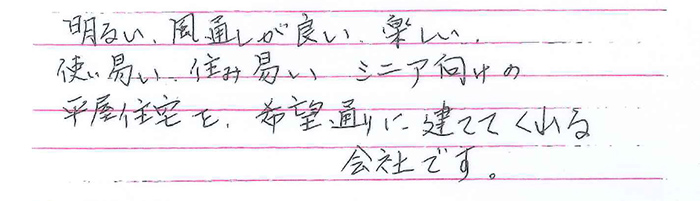 明るい、風通しが良い、楽しい、
使い易い、住み易い シニア向けの
平屋住宅を、希望通りに建ててくれる
会社です。